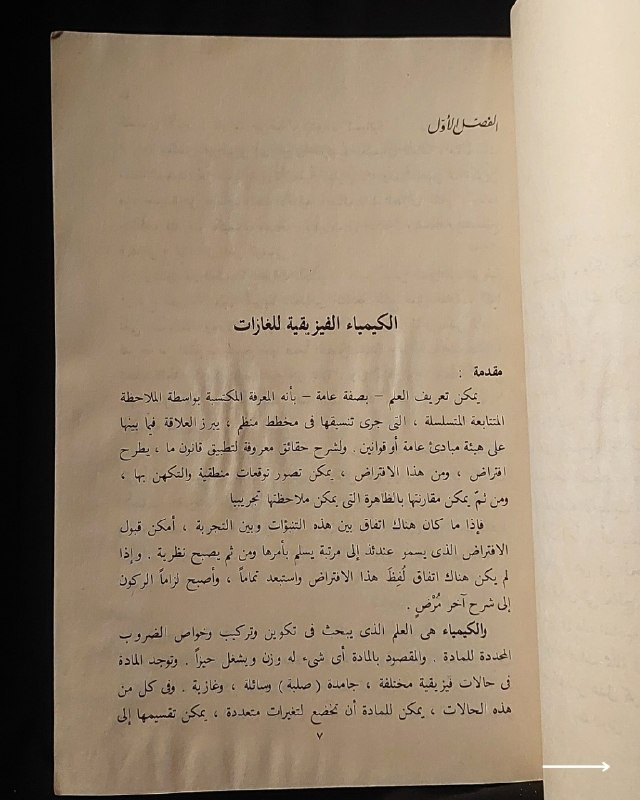 الفصل الأول
الكيمياء الفيزيقية للغازات
مقدمة :
يمكن تعريف العلم – بصفة عامة – بأنه المعرفة المكتسبة بواسطة الملاحظة
المتتابعة المتسلسلة ، التى جرى تنسيقها فى مخطط منظم ، يبرز العلاقة فيما بينها
على هيئة مبادئ عامة أو قوانين . ولشرح حقائق معروفة لتطبيق قانون ما ، يطرح
افتراض ، ومن هذا الافتراض ، يمكن تصور توقعات منطقية والتكهن بها ،
ومن ثمّ يمكن مقارنتها بالظاهرة التى يمكن ملاحظتها تجريبيا
فإذا ما كان هناك اتفاق بين هذه التنبؤات وبين التجربة ، أمكن قبول
الافتراض الذى يسمو عندئذ إلى مرتبة يسلم بأمرها ومن ثم يصبح نظرية . وإذا
لم يكن هناك اتفاق لُفِظَ هذا الافتراض واستبعد تماماً ، وأصبح لزاماً الركون
إلى شرح آخر مُرْضٍ .
والكيمياء هى العلم الذى يبحث فى تكوين وتركيب وخواص الضروب
المحددة للمادة . والمقصود بالمادة أى شىء له وزن ويشغل حيزاً . وتوجد المادة
فى حالات فيزيقية مختلفة ، جامدة ( صلبة ) وسائلة ، وغازية . وفى كل من
هذه الحالات ، يمكن للمادة أن تخضع لتغيرات متعددة ، يمكن تقسيمها إلى
٧